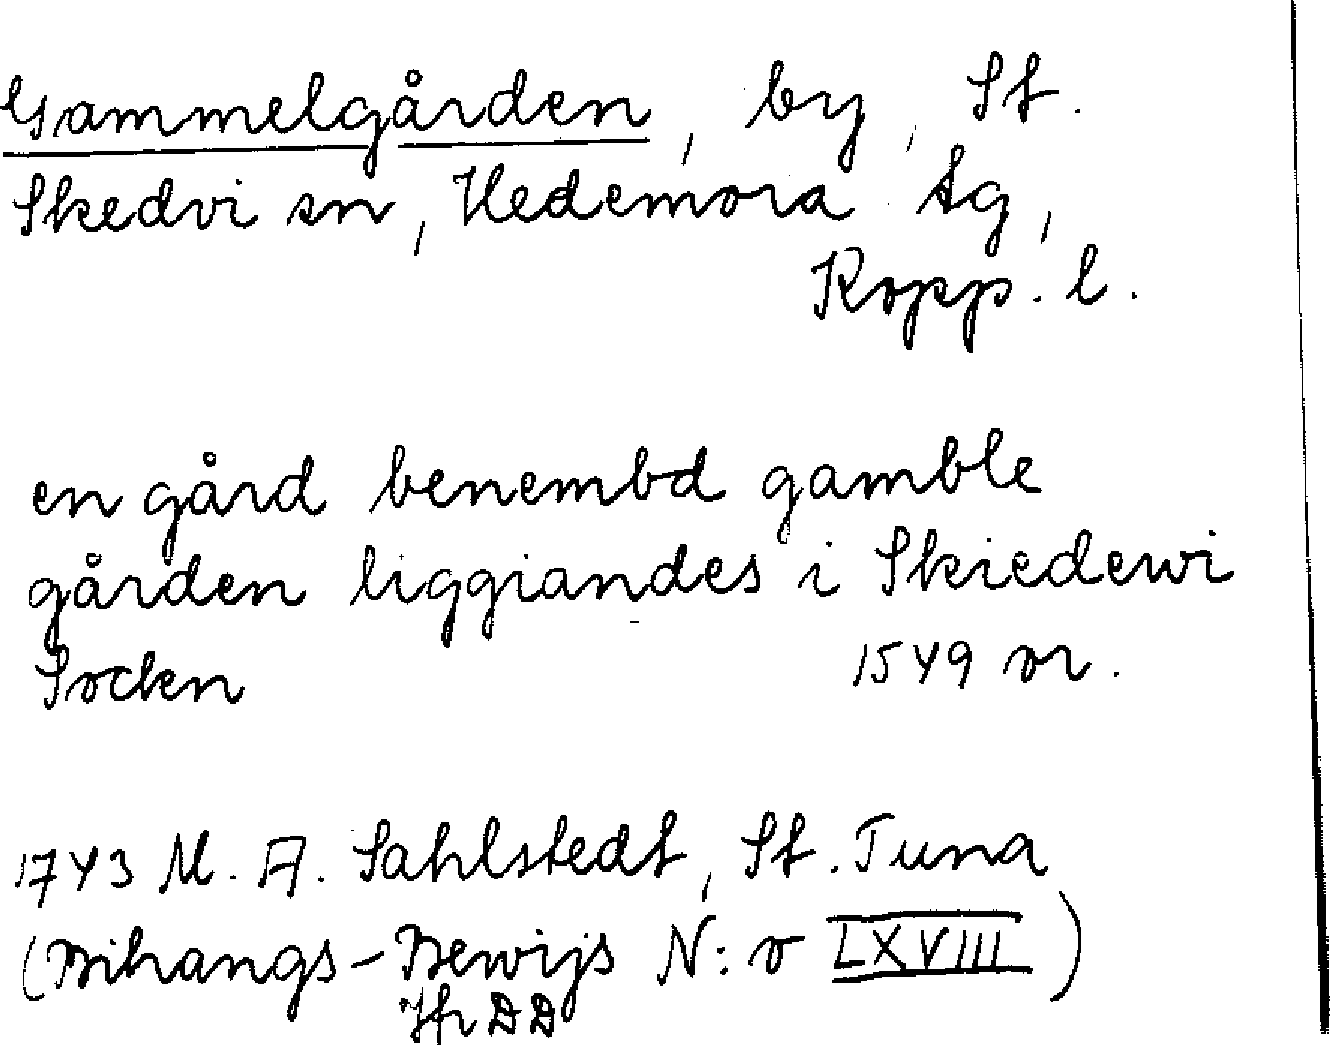 Gammelgården, by, St.
Skedvi sn, Hedemora tg,
Kopp. l.
en gård benembd gamble
gården liggiandes i Skiedewi
Socken 1549 or.
1743 M. A. Sahlstedt, St. Tuna
(Bihangs-Bewijs N:o LXVIII)